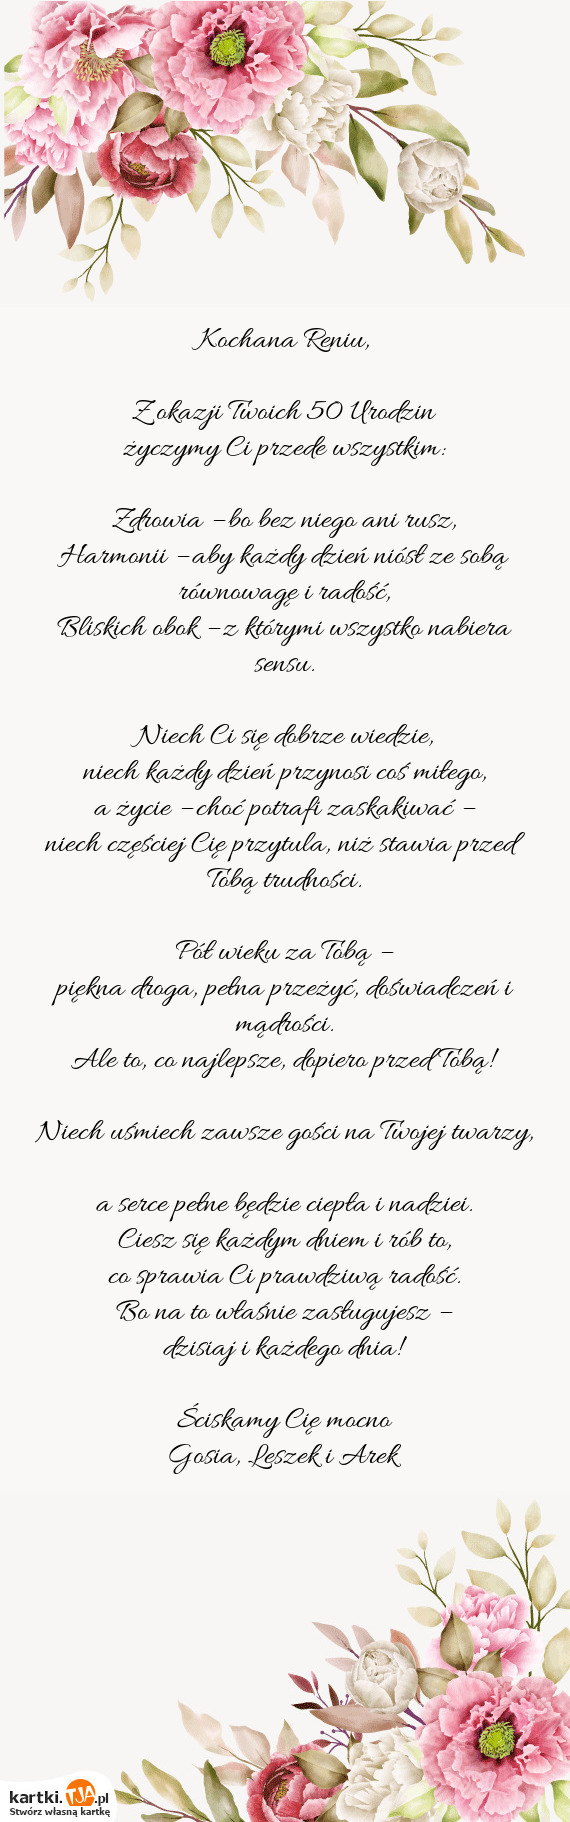 Kochana Reniu,
Z okazji Twoich 50 Urodzin
życzymy Ci przede wszystkim:
Zdrowia – bo bez niego ani rusz,
Harmonii – aby każdy dzień niósł ze sobą
równowagę i radość,
Bliskich obok – z którymi wszystko nabiera
sensu.
Niech Ci się dobrze wiedzie,
niech każdy dzień przynosi coś miłego,
a życie – choć potrafi zaskakiwać –
niech częściej Cię przytula, niż stawia przed
Tobą trudności.
Pół wieku za Tobą –
piękna droga, pełna przeżyć, doświadczeń i
mądrości.
Ale to, co najlepsze, dopiero przed Tobą!
Niech uśmiech zawsze gości na Twojej twarzy,
a serce pełne będzie ciepła i nadziei.
Ciesz się każdym dniem i rób to,
co sprawia Ci prawdziwą radość.
Bo na to właśnie zasługujesz –
dzisiaj i każdego dnia!
Ściskamy Cię mocno
Gosia, Leszek i Arek
kartki.TJA.pl
Stwórz własną kartkę